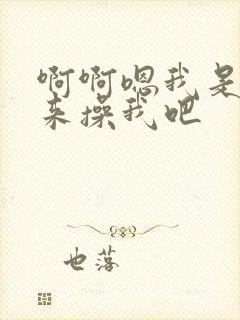 啊啊嗯我是
来操我吧
也落